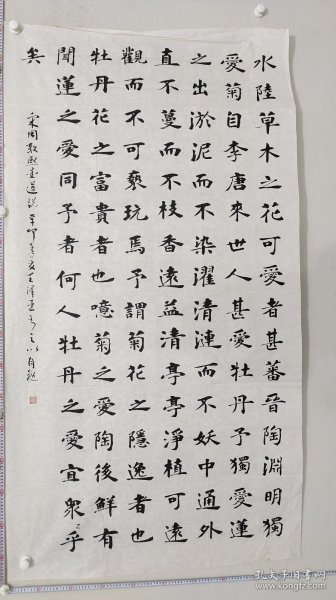 水陸草木之花可愛者甚蕃晉陶淵明獨
愛菊自李唐來世人甚愛牡丹予獨愛蓮
之出淤泥而不染濯清漣而不妖中通外
直不蔓而不枝香遠益清亭亭淨植可遠
觀而不可褻玩焉予謂菊花之隱逸者也
牡丹花之富貴者也噫菊之愛陶後鮮有
聞蓮之愛同予者何人牡丹之愛宜眾乎
矣
宋周敦頤愛蓮說辛卯
孔夫子旧书网